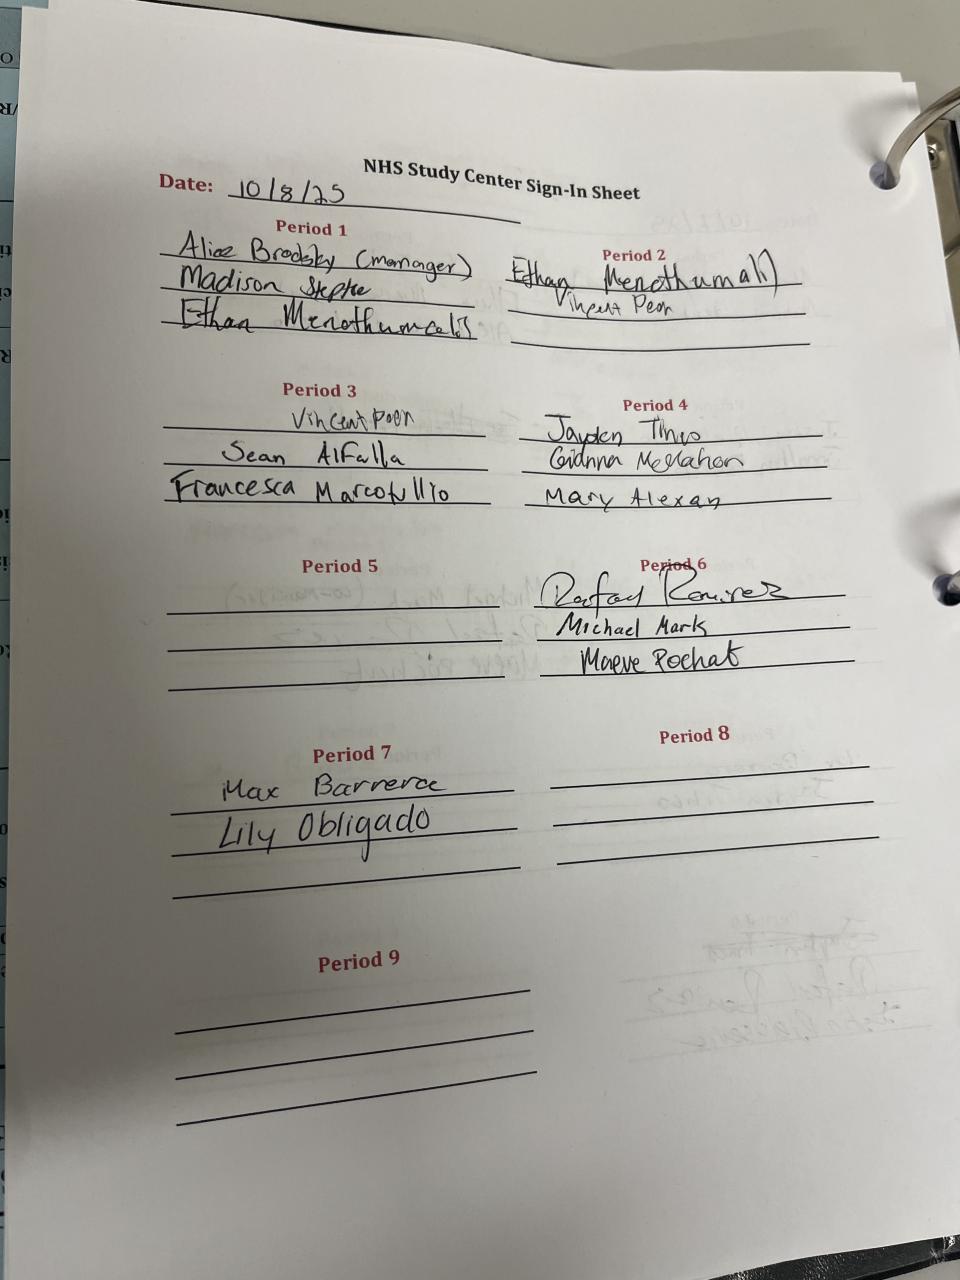 NHS Study Center Sign-In Sheet
Date: 10/8/25
Period 1
Alice Brodsky (manager)
Madison
Ethan
Period 2
Ethan
Vincent Peon
Period 3
Vincent Peon
Sean AlFalla
Francesca Marcotullio
Period 4
Jayden
Gianna McMahon
Mary Alexan
Period 5
Period 6
Rafael Ramirez
Michael Mark
Maeve Pochat
Period 7
Max Barrera
Lily Obligado
Period 8
Period 9